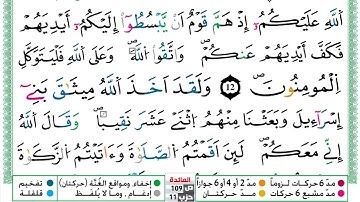 اللَّهِ عَلَيْكُمُۥٓ إِذْ هَمَّ قَوْمٌ اَنْ يَّبْسُطُوٓاْ إِلَيْكُمُۥٓ أَيْدِيَهُمْ
فَكَفَّ أَيْدِيَهُمْ عَنكُمْۖ وَاتَّقُواْ اللَّهَۖ وَعَلَى اللَّهِ فَلْيَتَوَكَّلِ
اِلْمُومِنُونَۖ 12 وَلَقَدَ اَخَذَ اَللَّهُ مِيثَٰقَ بَنِےٓ
إِسْرَآءِيلَ وَبَعَثْنَا مِنْهُمُ اثْنَےْ عَشَرَ نَقِيباًۖ وَقَالَ اَللَّهُ
إِنِّے مَعَكُمْۖ لَئِنَ اَقَمْتُمُ الصَّلَوٰةَ وَءَاتَيْتُمُ الزَّكَوٰةَ
مدّ 6 حركات لزوماً مدّ 2 أو 4 أو 6 جوازاً المائدة 109 حزب 11 إخفاء، ومواقع الغُنَّة (حركتان) تفخيم
مدّ مشبع 6 حركات مدّ حركتان إدغام، وما لا يُلفظ قلقلة